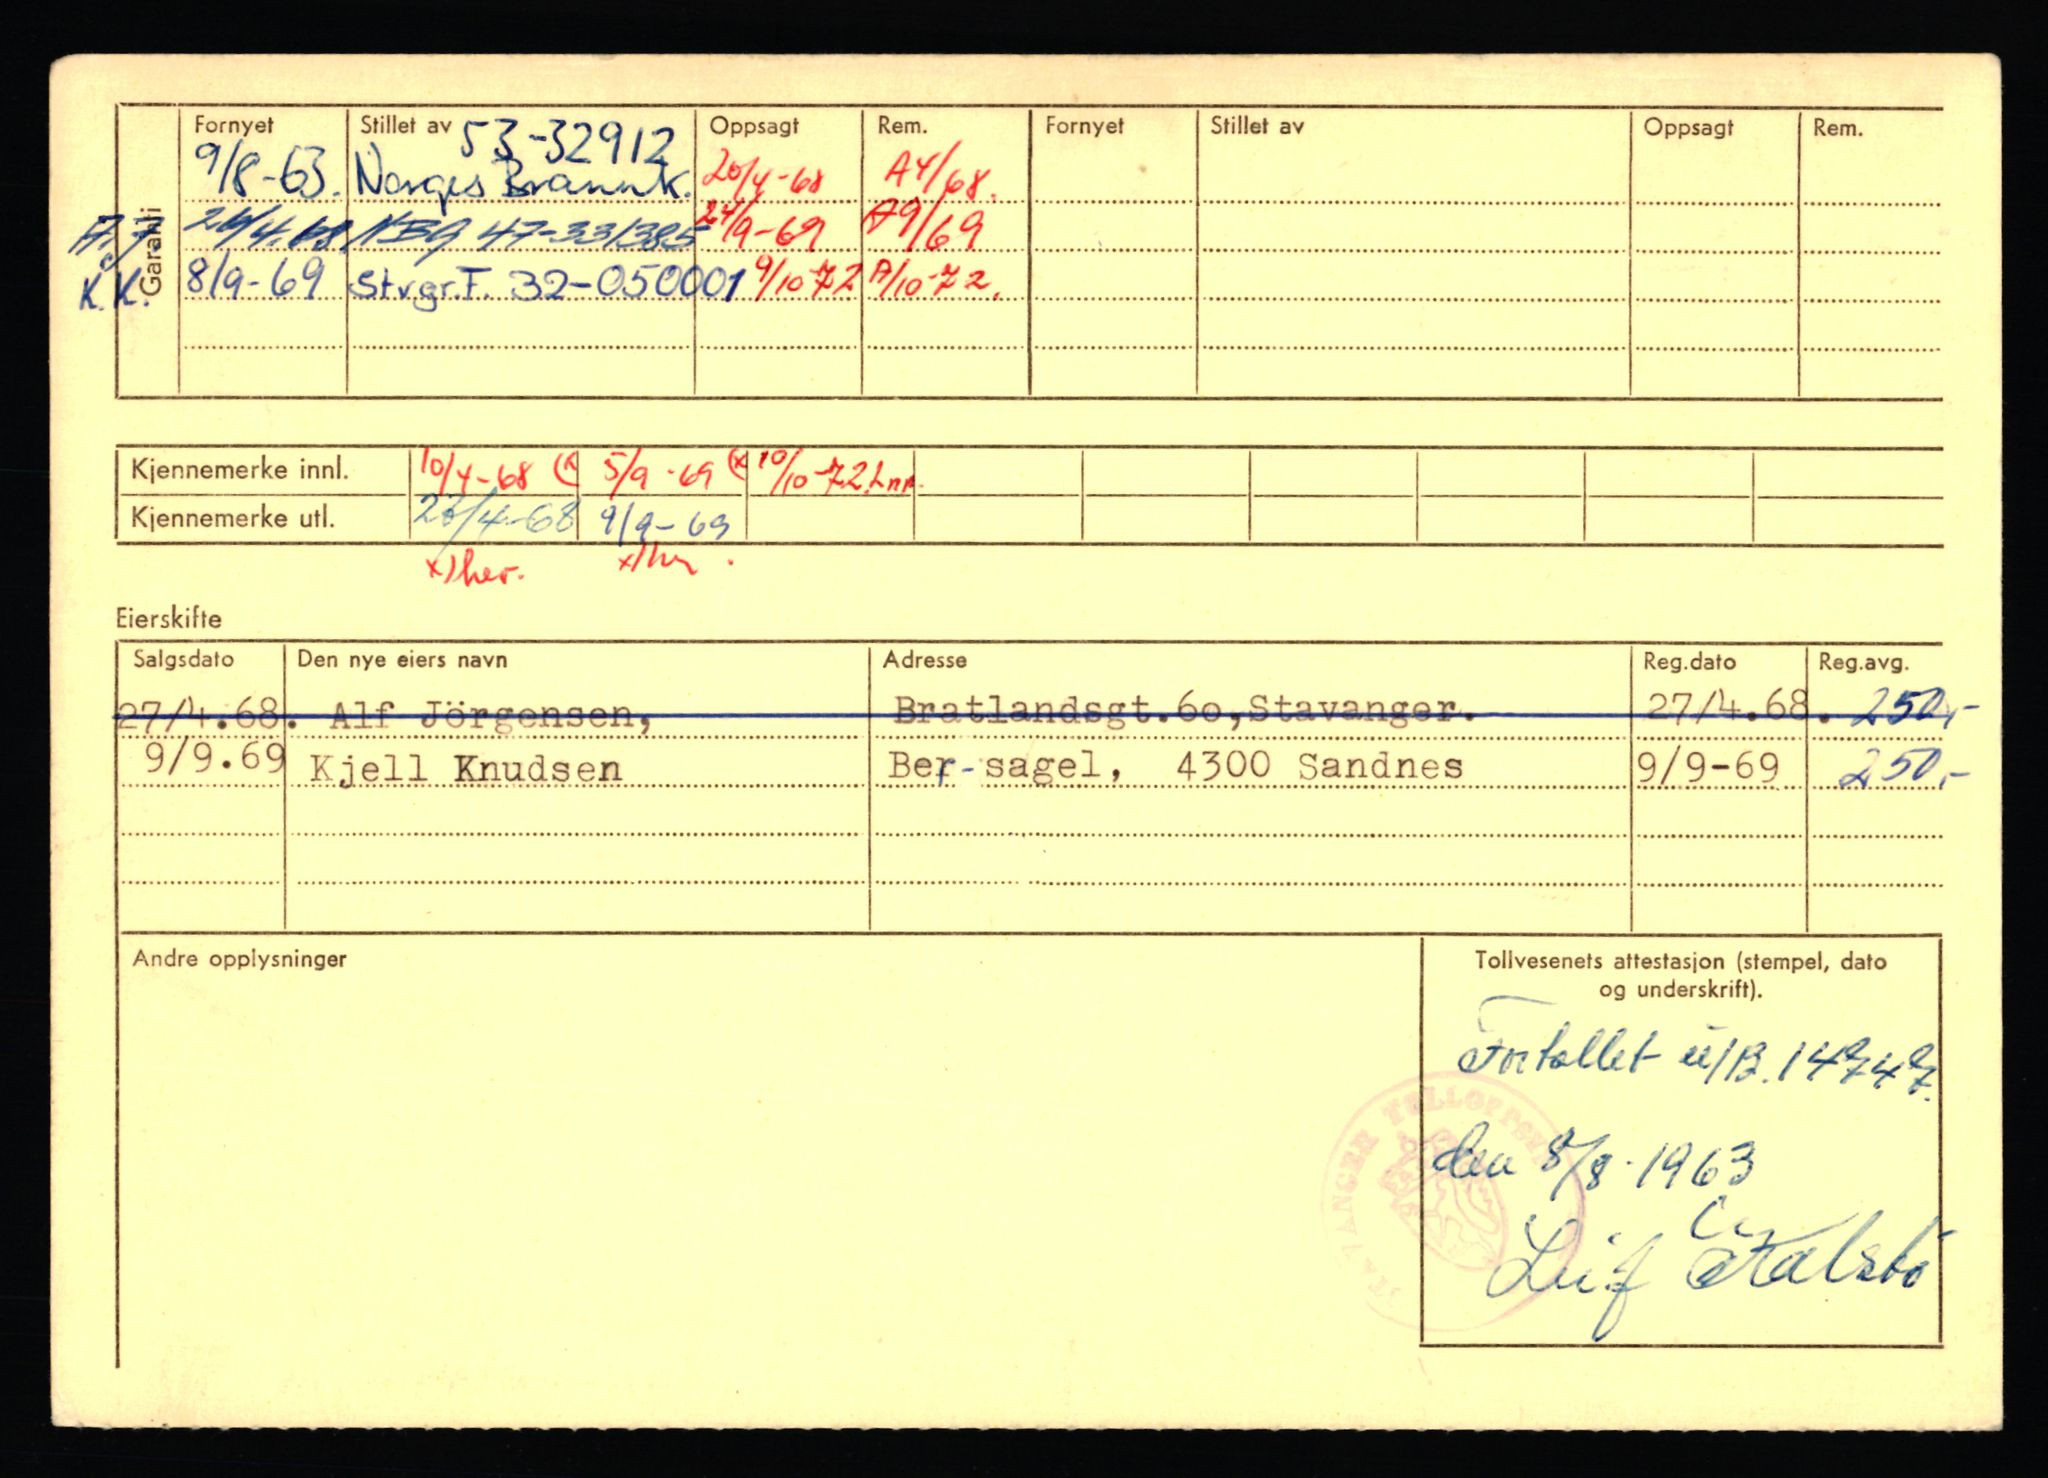 Garanti
Fornyet Stillet av Oppsagt Rem. Fornyet Stillet av Oppsagt Rem.
53-32912
9/8-63. Norges Brannk. 20/4-68 A4/68.
A.J. 26/4.68 NBG 47-331385 24/9-69 A9/69
K.K. 8/9-69 Stvgr.F. 32-050001 9/10-72 A/10-72.
Kjennemerke innl. 10/4-68 (x 5/9-69 (x 10/10-72
Kjennemerke utl. 26/4-68 9/9-69
x) her. x) her.
Eierskifte
Salgsdato Den nye eiers navn Adresse Reg.dato Reg.avg.
27/4.68. Alf Jörgensen, Bratlandsgt.6o,Stavanger. 27/4.68. 250,-
9/9.69 Kjell Knudsen Ber- sagel, 4300 Sandnes 9/9-69 250,-
Andre opplysninger
Tollvesenets attestasjon (stempel, dato
og underskrift).
Fortollet u/B. 14747.
den 8/8-1963
Leif Falsbö
STAVANGER